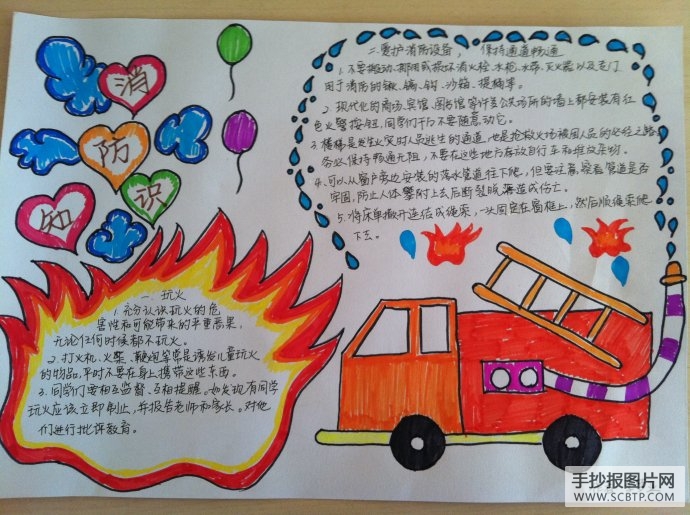 消
防
知
识
一、玩火
1.充分认识玩火的危
害性和可能带来的严重恶果,
无论任何时候都不玩火。
2.打火机、火柴、鞭炮等常是诱发儿童玩火
的物品,平时不要在身上携带这些东西。
3.同学们要相互监督、互相提醒。如发现有同学
玩火应该立即制止,并报告老师和家长。对他
们进行批评教育。
二、爱护消防设备, 保持通道畅通
1.不要搬动、挪用或损坏消火栓、水枪、水带、灭火器以及专门
用于消防的锹、镐、钩、沙箱、提桶等。
2.现代化的商场、宾馆、图书馆等许多公共场所的墙上都安装有红
色火警按钮,同学们千万不要随意动它。
3.楼梯是发生火灾时人员逃生的通道,也是抢救火场被困人员的必经之路
务必保持畅通无阻,不要在这些地方存放自行车和堆放杂物。
4.可以从窗户旁边安装的落水管道往下爬,但要注意察看管道是否
牢固,防止人体攀附上去后断裂脱落造成伤亡。
5.将床单撕开连结成绳索,一头固定在窗框上,然后顺绳索爬
下去。
手抄报图片网
WWW.SCBTP.COM